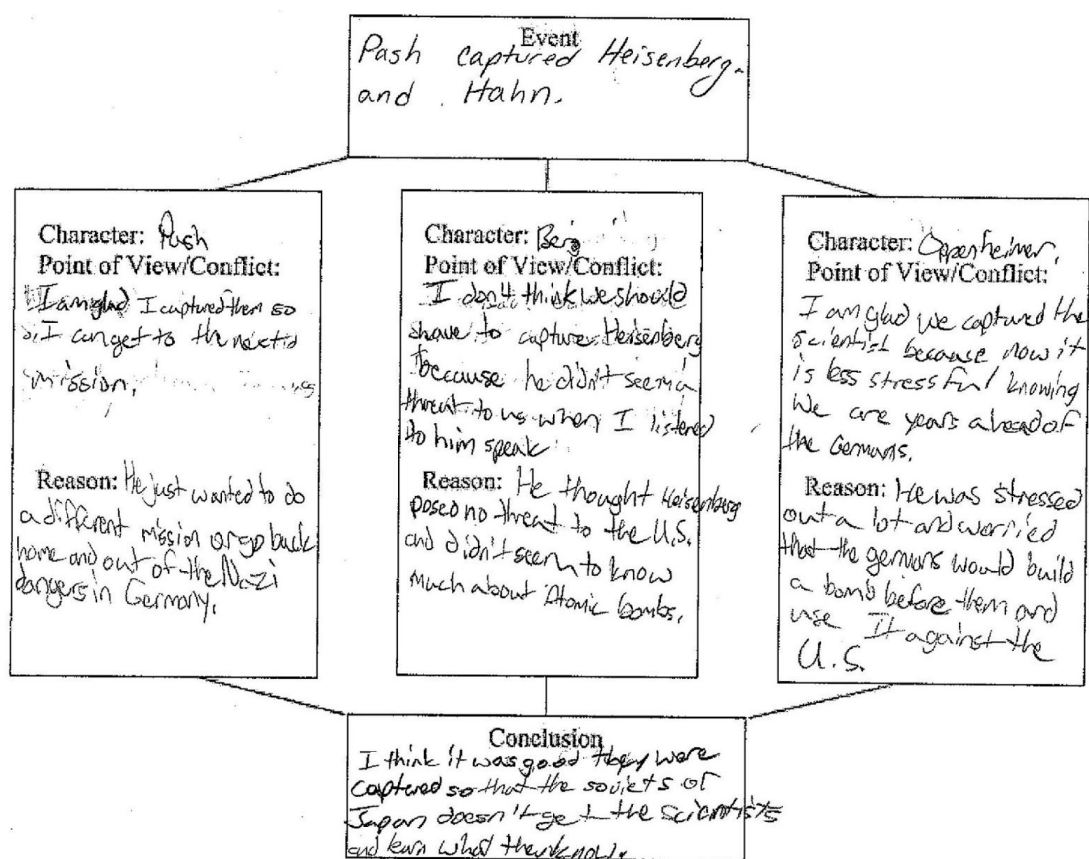 Event
Pash captured Heisenberg
and Hahn.
Character: Pash
Point of View/Conflict:
I am glad I captured them so
I can get to the next
mission.
Reason: He just wanted to do
a different mission or go back
home and out of the Nazi
dangers in Germany.
Character: Berg
Point of View/Conflict:
I don't think we should
have to capture Heisenberg
because he didn't seem a
threat to us when I listened
to him speak
Reason: He thought Heisenberg
posed no threat to the U.S.
and didn't seem to know
much about Atomic bombs.
Character: Oppenheimer.
Point of View/Conflict:
I am glad we captured the
scientist because now it
is less stressful knowing
we are years ahead of
the Germans.
Reason: He was stressed
out a lot and worried
that the germans would build
a bomb before them and
use It against the
U.S.
Conclusion
I think it was good they were
captured so that the soviets or
Japan doesn't get the scientists
and learn what they know.